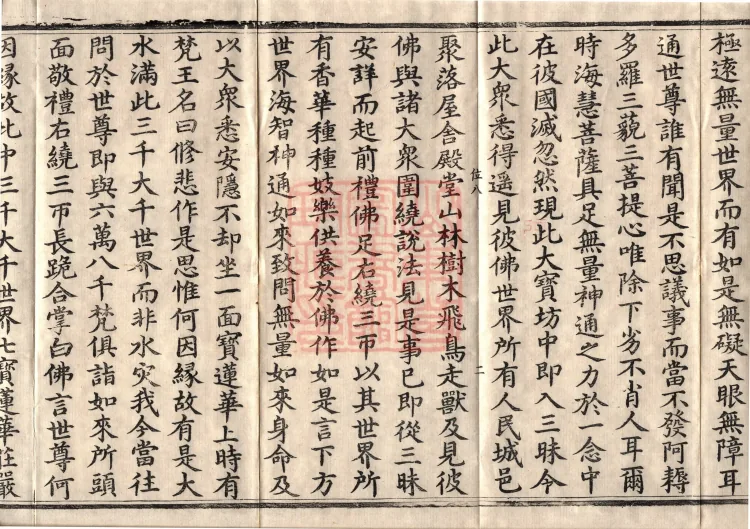 極遠無量世界而有如是無礙天眼無障耳
通世尊誰有聞是不思議事而當不發阿耨
多羅三藐三菩提心唯除下劣不肖人耳爾
時海慧菩薩具足無量神通之力於一念中
在彼國滅忽然現此大寶坊中即入三昧令
此大衆悉得遥見彼佛世界所有人民城邑
位八
二
聚落屋舍殿堂山林樹木飛鳥走獸及見彼
佛與諸大衆圍繞說法見是事已即從三昧
安詳而起前禮佛足右繞三帀以其世界所
有香華種種妓樂供養於佛作如是言下方
世界海智神通如來致問無量如來身命及
以大衆悉安隱不却坐一面寶蓮華上時有
梵王名曰修悲作是思惟何因緣故有是大
水滿此三千大千世界而非水災我今當往
問於世尊即與六萬八千梵俱詣如來所頭
面敬禮右繞三帀長跪合掌白佛言世尊何
因緣故此中三千大千世界七寶蓮華莊嚴